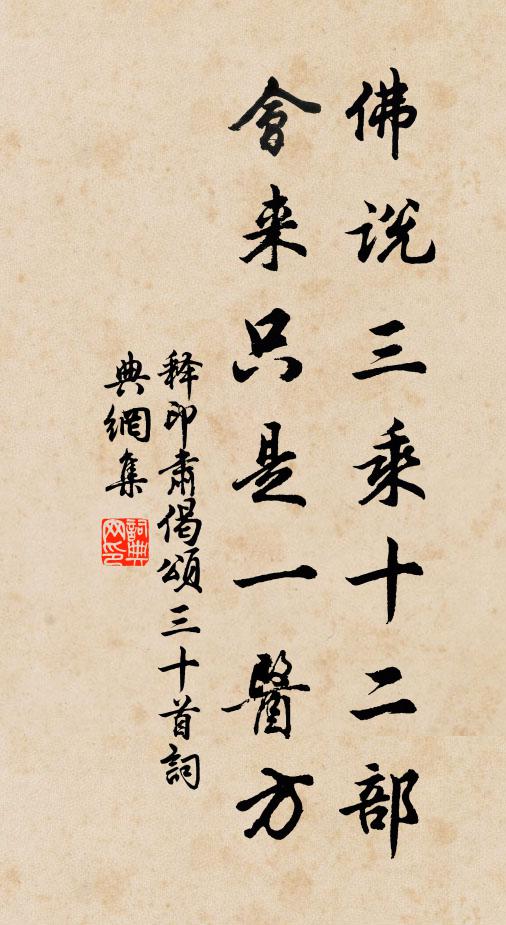 佛説三乘十二部
會来只是一醫方
释印肅偈頌三十首詞
典網集
詞典網印